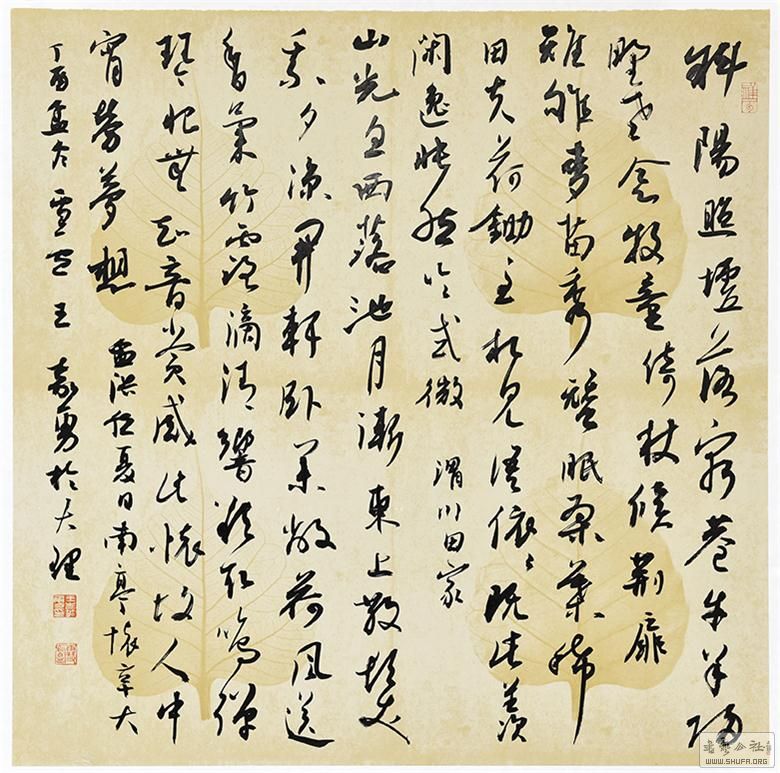 斜陽照墟落窮巷牛羊歸
野老念牧童倚杖候荊扉
雉雊麥苗秀蠶眠桑葉稀
田夫荷鋤至相見語依〻既此羨
閑逸悵然吟式微 渭川田家
山光忽西落池月漸東上散髮
乘夕涼開軒臥閑敞荷風送
香氣竹露滴清響欲取鳴彈
琴恨無知音賞感此懷故人中
宵勞夢想 孟浩然夏日南亭懷辛大
丁酉孟冬雪王嘉勇於大理
書藝公社
WWW.SHUFA.ORG